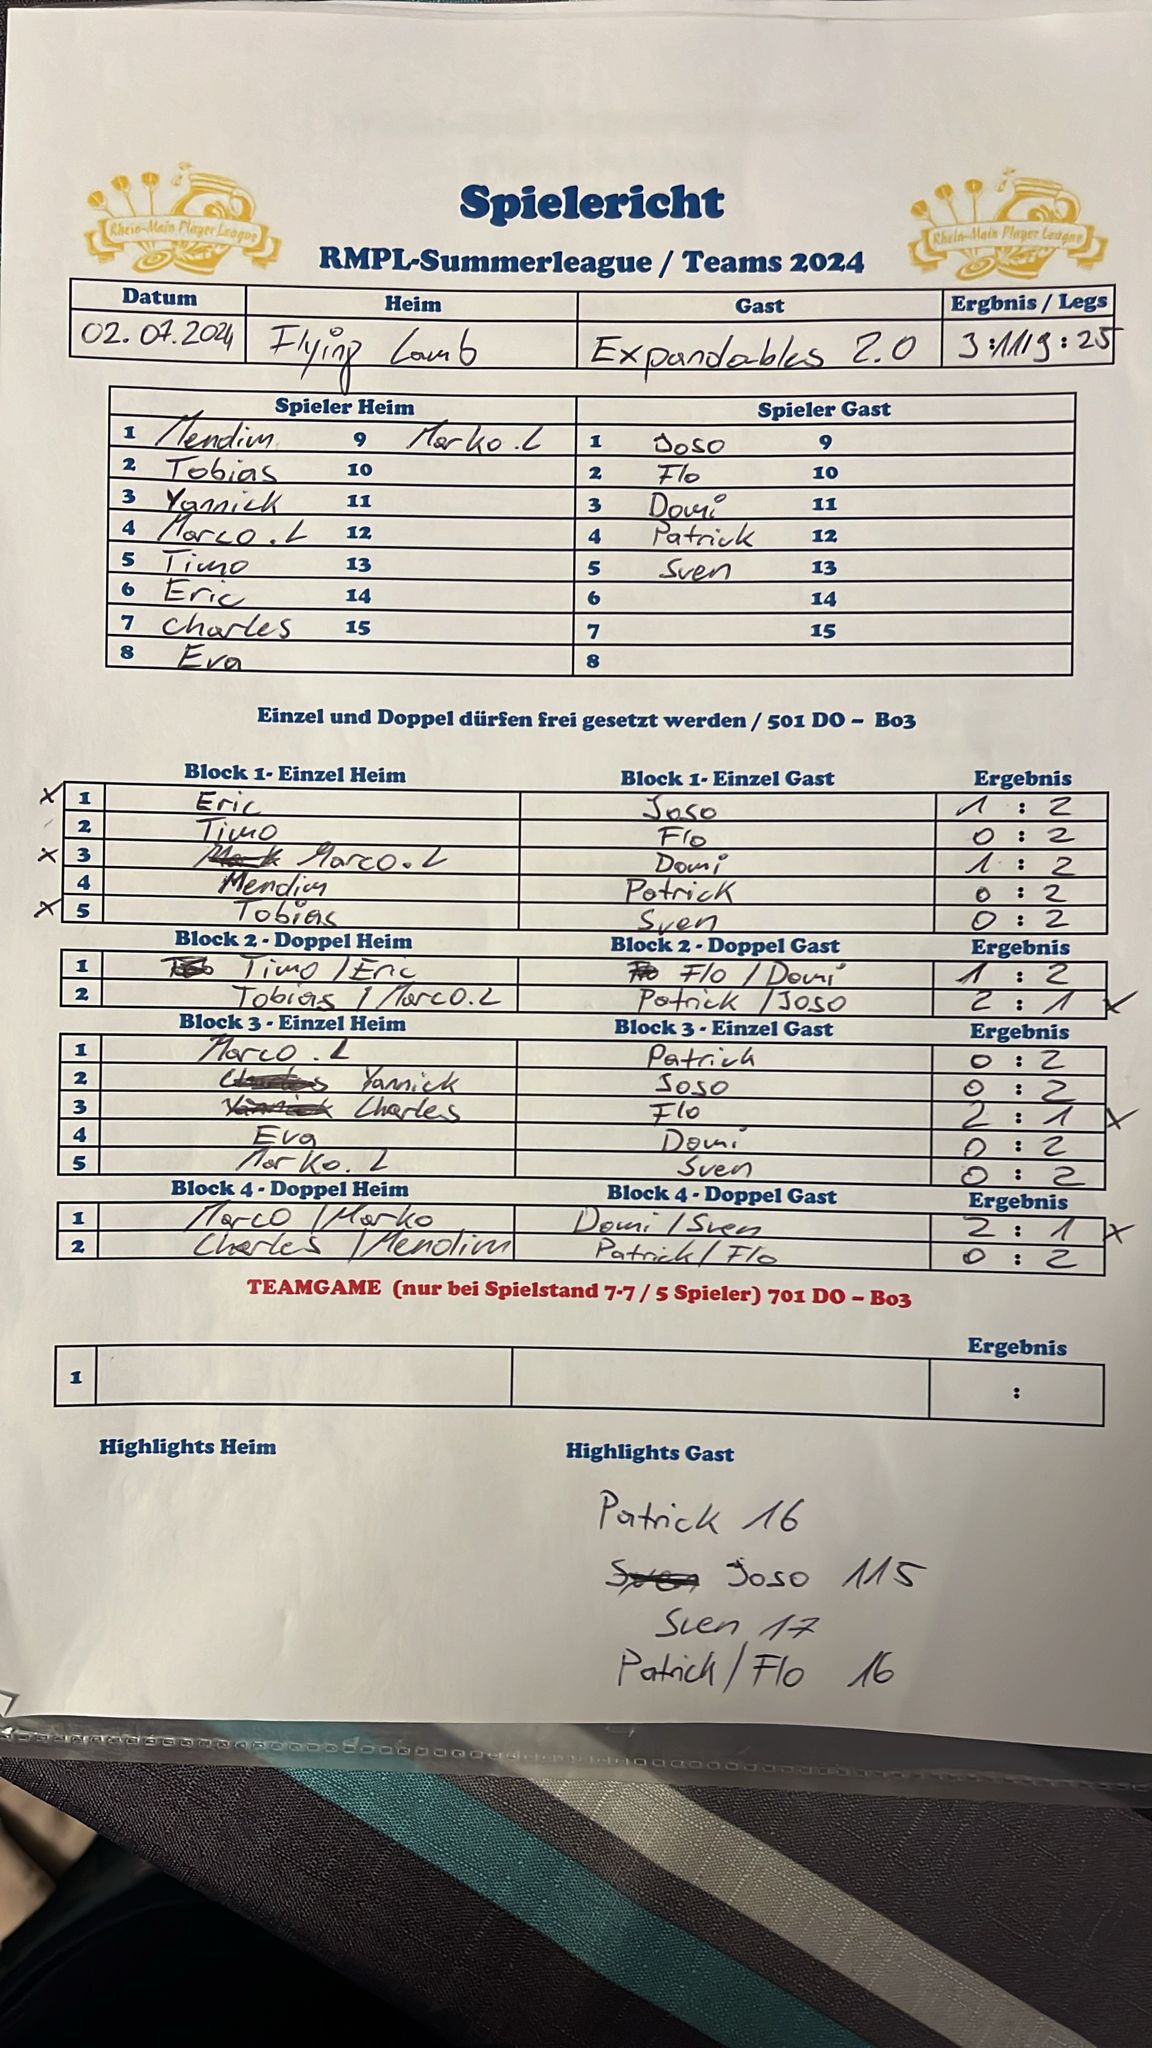 Rhein-Main Player League
Rhein-Main Player League
Spielericht
RMPL-Summerleague / Teams 2024
Datum Heim Gast Ergbnis / Legs
02.07.2024 Flying Lamb Expandables 2.0 3:11/9:25
Spieler Heim Spieler Gast
1 Mendim 9 Marko.L 1 Joso 9
2 Tobias 10 2 Flo 10
3 Yannick 11 3 Domi 11
4 Marco.L 12 4 Patrick 12
5 Timo 13 5 Sven 13
6 Eric 14 6 14
7 Charles 15 7 15
8 Eva 8
Einzel und Doppel dürfen frei gesetzt werden / 501 DO – Bo3
Block 1- Einzel Heim Block 1- Einzel Gast Ergebnis
x 1 Eric Joso 1 : 2
2 Timo Flo 0 : 2
x 3 Marco.L Domi 1 : 2
4 Mendim Patrick 0 : 2
x 5 Tobias Sven 0 : 2
Block 2 - Doppel Heim Block 2 - Doppel Gast Ergebnis
1 Timo / Eric Flo / Domi 1 : 2
2 Tobias / Marco.L Patrick / Joso 2 : 1 x
Block 3 - Einzel Heim Block 3 - Einzel Gast Ergebnis
1 Marco.L Patrick 0 : 2
2 Charles Yannick Joso 0 : 2
3 Yannick Charles Flo 2 : 1 x
4 Eva Domi 0 : 2
5 Marko.L Sven 0 : 2
Block 4 - Doppel Heim Block 4 - Doppel Gast Ergebnis
1 Marco / Marko Domi / Sven 2 : 1 x
2 Charles / Mendim Patrick / Flo 0 : 2
TEAMGAME (nur bei Spielstand 7-7 / 5 Spieler) 701 DO – Bo3
Ergebnis
1 :
Highlights Heim Highlights Gast
Patrick 16
Sven Joso 115
Sven 17
Patrick / Flo 16